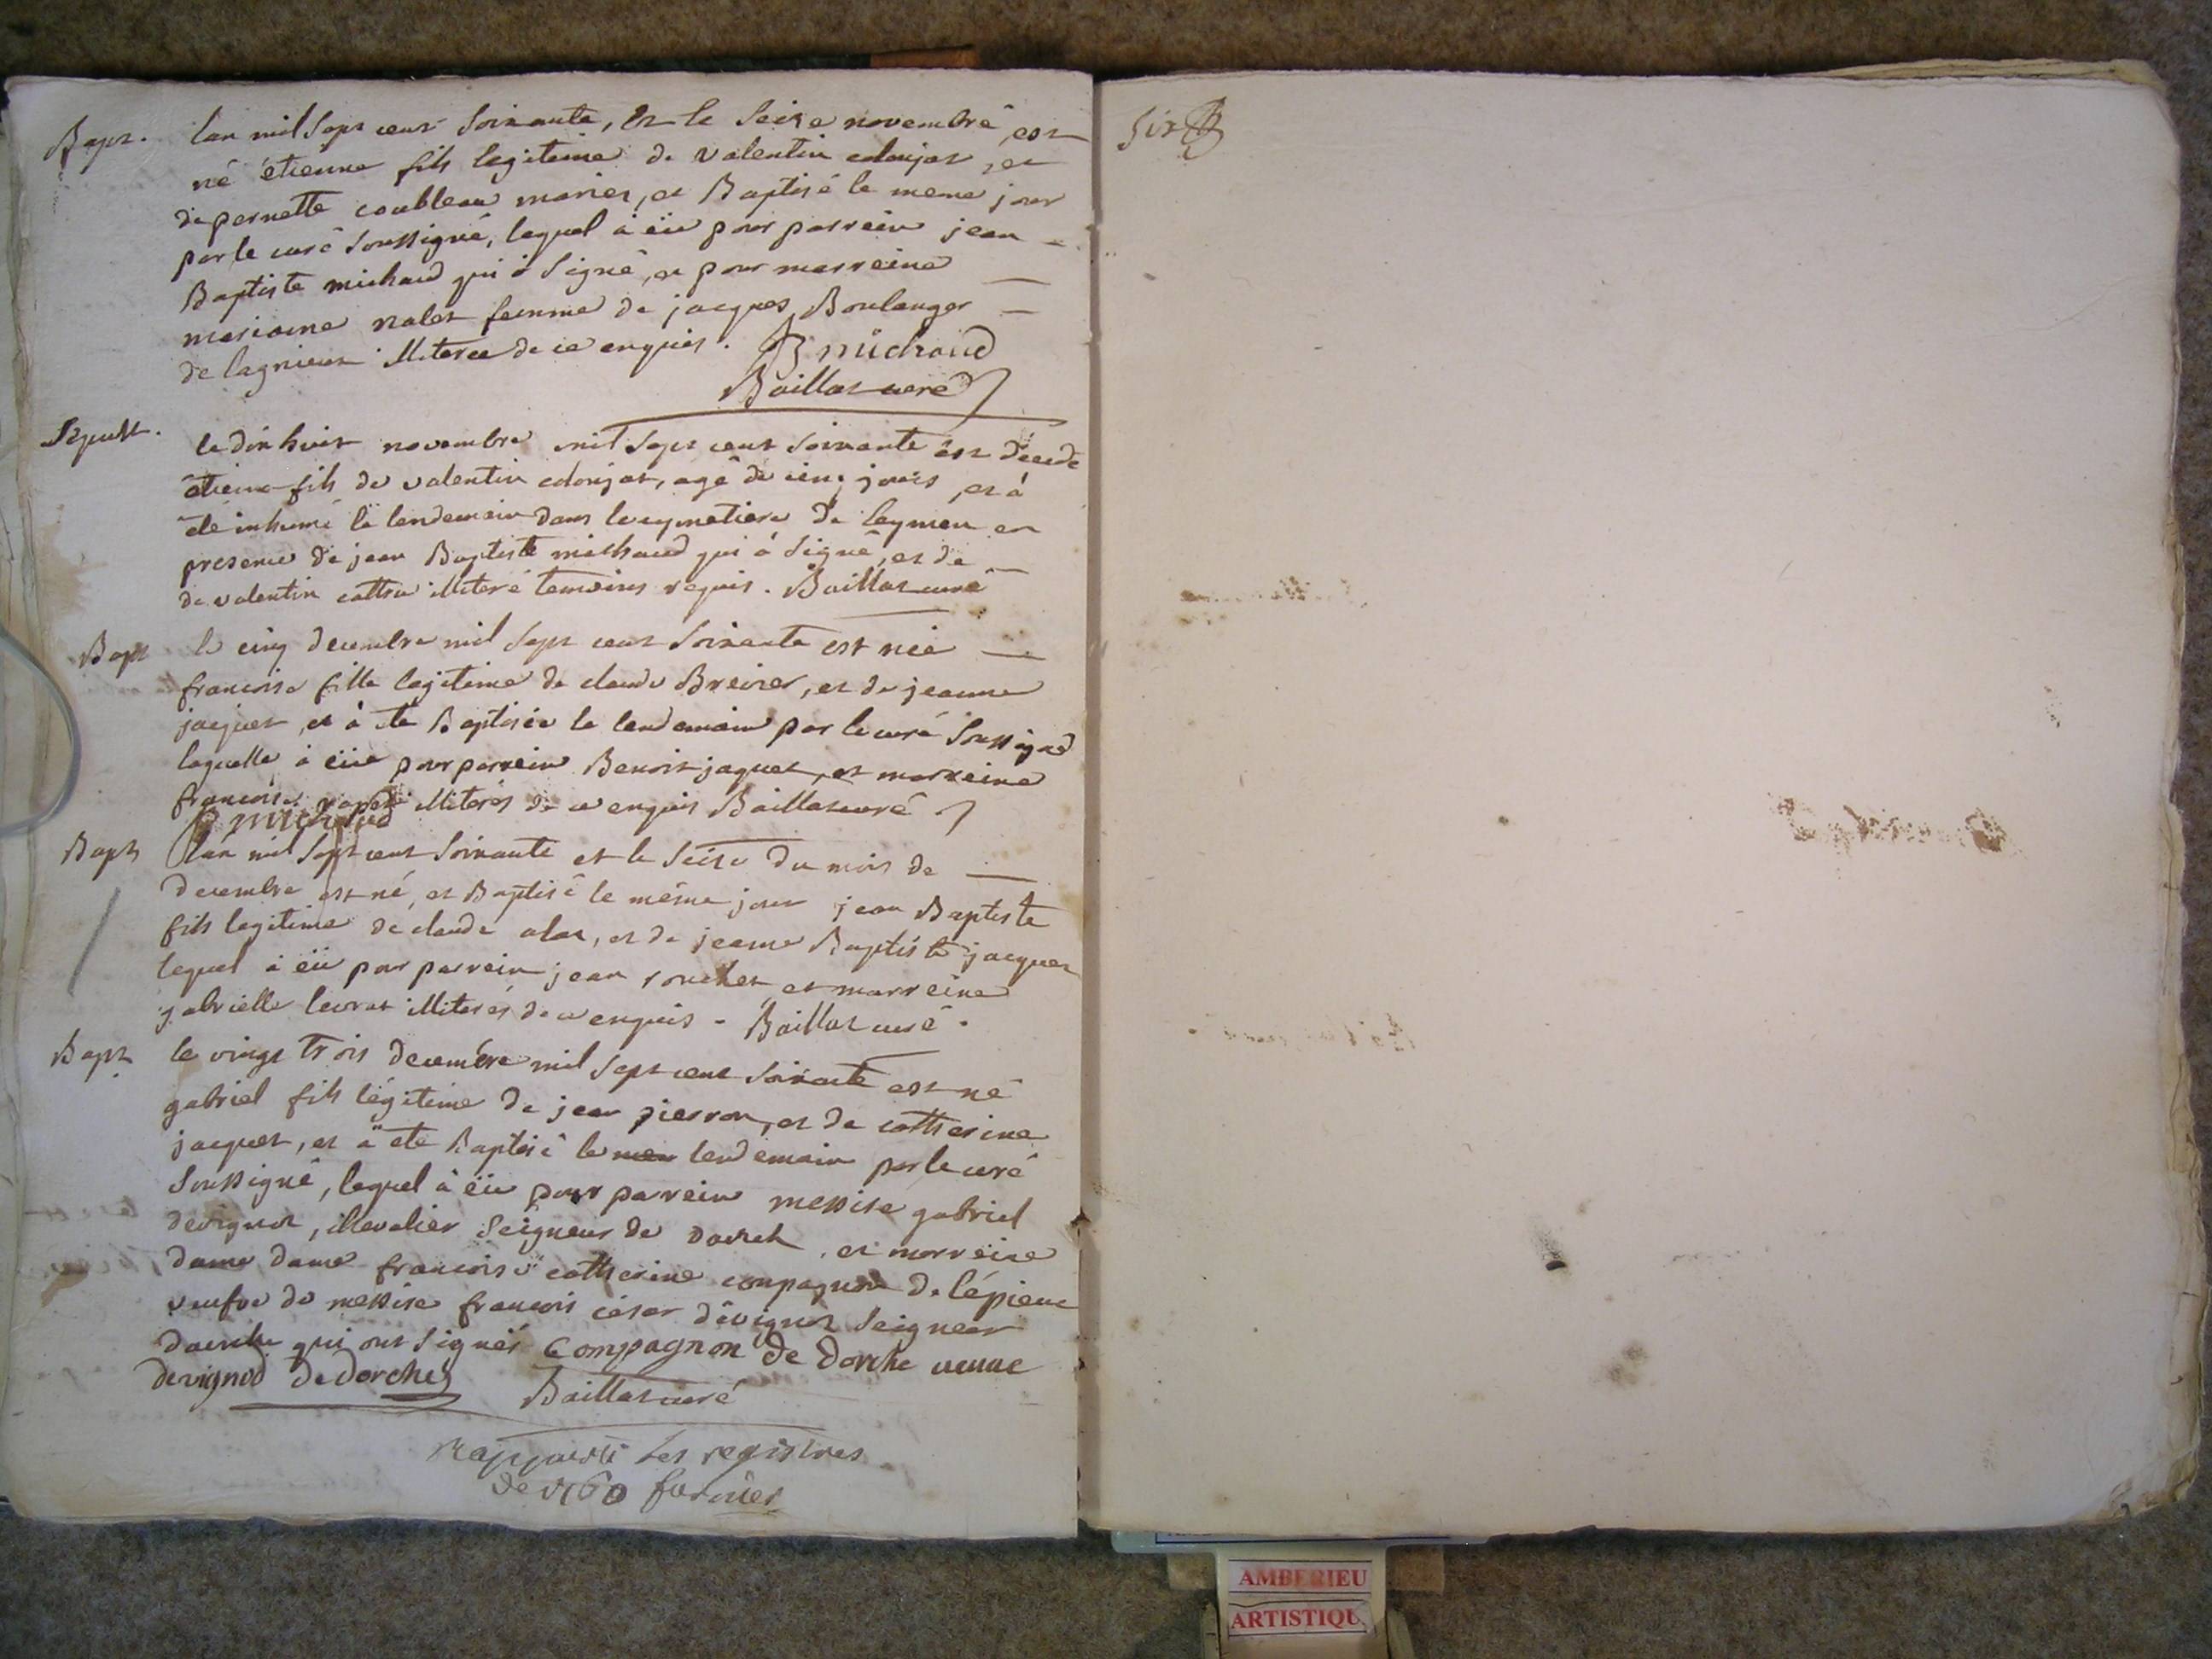 Bapt. lan mil Sept cent Soixante, Et le Seize novembre est
né étienne fils legitime de valentin colonjat, et
de pernette coubleau mariez, et Baptisé le meme jour
par le curé Soussigné, lequel à eü pour parrein jean
Baptiste michaud qui à Signé, et pour marreine
marianne nalet femme de jacques Boulanger
de lagnieux illiteree de ce enquis. JB michaud
Baillat curé
Sepult. le dix huit novembre mil Sept cent Soixante est decedé
étienne fils de valentin colonjat, agé de cinq jours, et à
été inhumé le lendemain dans le cymetiere de leymen en
presence de jean Baptiste michaud qui à Signé, et de
de valentin cattin illiteré temoins requis. Baillat curé
Bapt le cinq decembre mil Sept cent Soixante est née
francoise fille legitime de claude Breires, et de jeanne
jaquet, et à ete Baptisée le lendemain par le curé Soussigné
laquelle à eüe pour parrein Benoit jaquet, et marreine
francoise illiterés de ce enquis Baillat curé
JB michaud
Bapt lan mil Sept cent Soixante et le Seize du mois de
decembre est né, et Baptisé le même jour jean Baptiste
fils legitime de claude alat, et de jeanne Baptiste jacquet
lequel à eü pour parrein jean souchet et marreine
gabrielle levrat illiterés de ce enquis. Baillat curé.
Bapt le vingt trois decembre mil Sept cent Soixante est né
gabriel fils légitime de jean pierron, et de catherine
jacquet, et à ete Baptisé le mem lendemain par le curé
Soussigné, lequel à eü pour parrein messire gabriel
devignot, chevalier Seigneur de dorch, et marreine
dame dame francoise catherine compagnon de lépienc
veufve de messire francois césar devignot Seigneur
dorche qui ont Signés Compagnon De Dorche veuve
devignod De dorches
Baillat curé
Rapporté les registres
de 1760
Six
AMBERIEU
ARTISTIQU